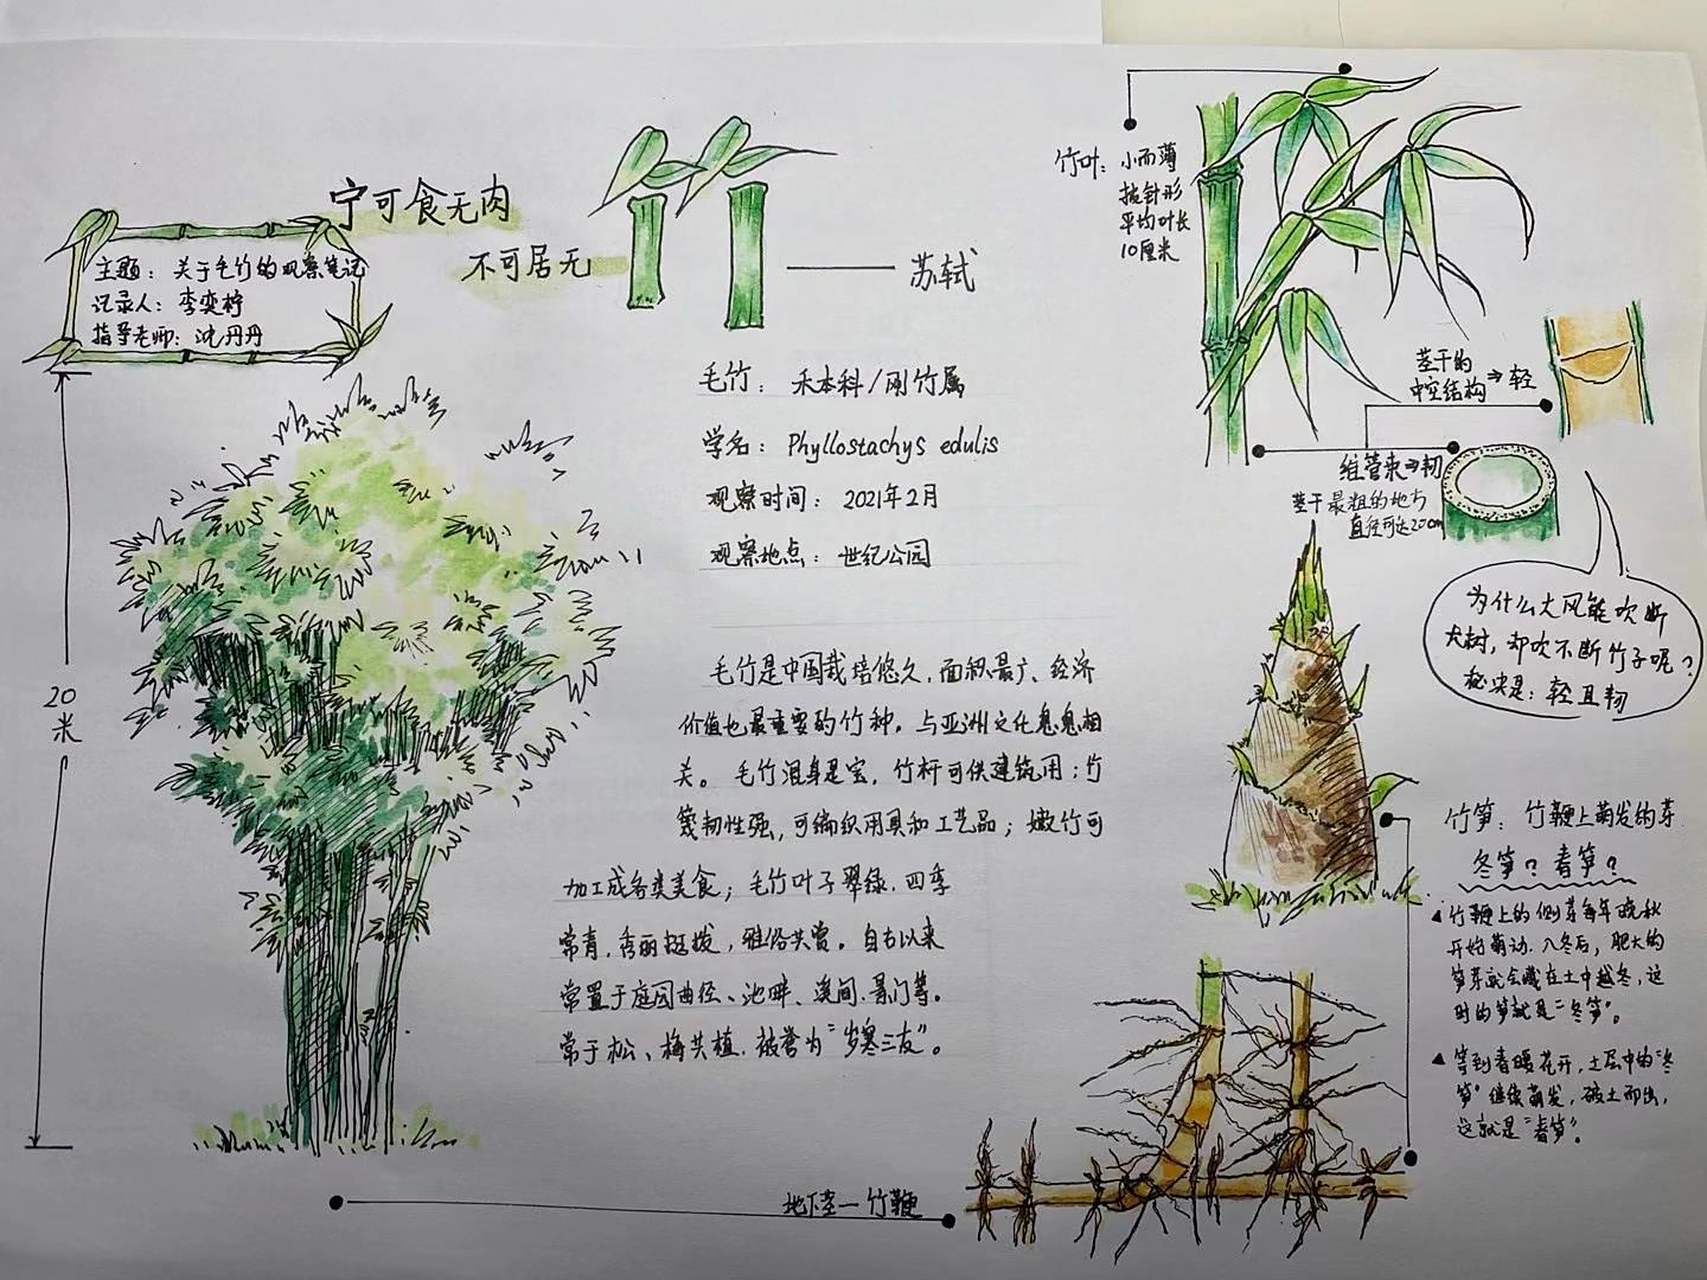 宁可食无肉
不可居无竹——苏轼
主题：关于毛竹的观察笔记
记录人：李奕柠
指导老师：沈丹丹
20
米
毛竹：禾本科/刚竹属
学名：Phyllostachys edulis
观察时间：2021年2月
观察地点：世纪公园
毛竹是中国栽培悠久，面积最广、经济
价值也最重要的竹种，与亚洲文化息息相
关。毛竹浑身是宝，竹杆可供建筑用；竹
篾韧性强，可编织用具和工艺品；嫩竹可
加工成各类美食；毛竹叶子翠绿，四季
常青，秀丽挺拔，雅俗共赏。自古以来
常置于庭园曲径、池畔、溪间、景门等。
常于松、梅共植，被誉为“岁寒三友”。
竹叶：小而薄
披针形
平均叶长
10厘米
茎干的
中空结构⇒轻
维管束⇒韧
茎干最粗的地方
直径可达20cm
为什么大风能吹断
大树，却吹不断竹子呢？
秘诀是：轻且韧
竹笋：竹鞭上萌发的芽
冬笋？春笋？
▲竹鞭上的侧芽每年晚秋
开始萌动，入冬后，肥大的
笋芽就会藏在土中越冬，这
时的笋就是“冬笋”。
▲等到春暖花开，土层中的“冬
笋”继续萌发，破土而出，
这就是“春笋”。
地下茎—竹鞭